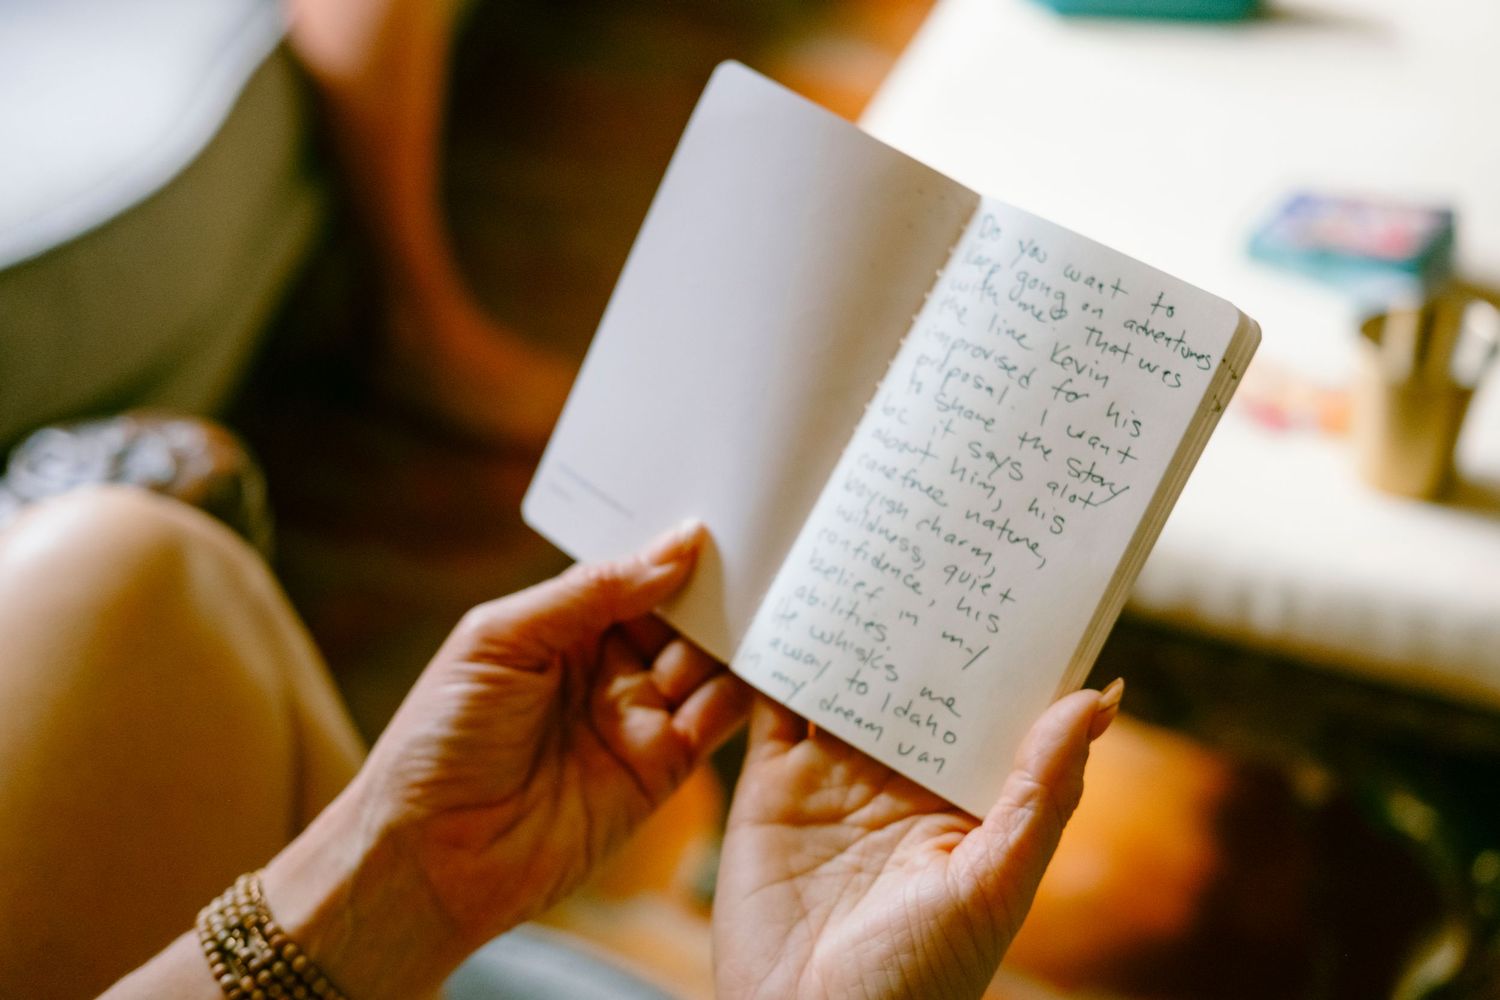 Do you want to
keep going on adventures
with me? That was
the line Kevin
improvised for his
proposal. I want
to share the story
bc it says alot
about him, his
carefree nature,
boyish charm,
wildness, quiet
confidence, his
belief in my
abilities.
He whisks me
away to Idaho
in my dream van